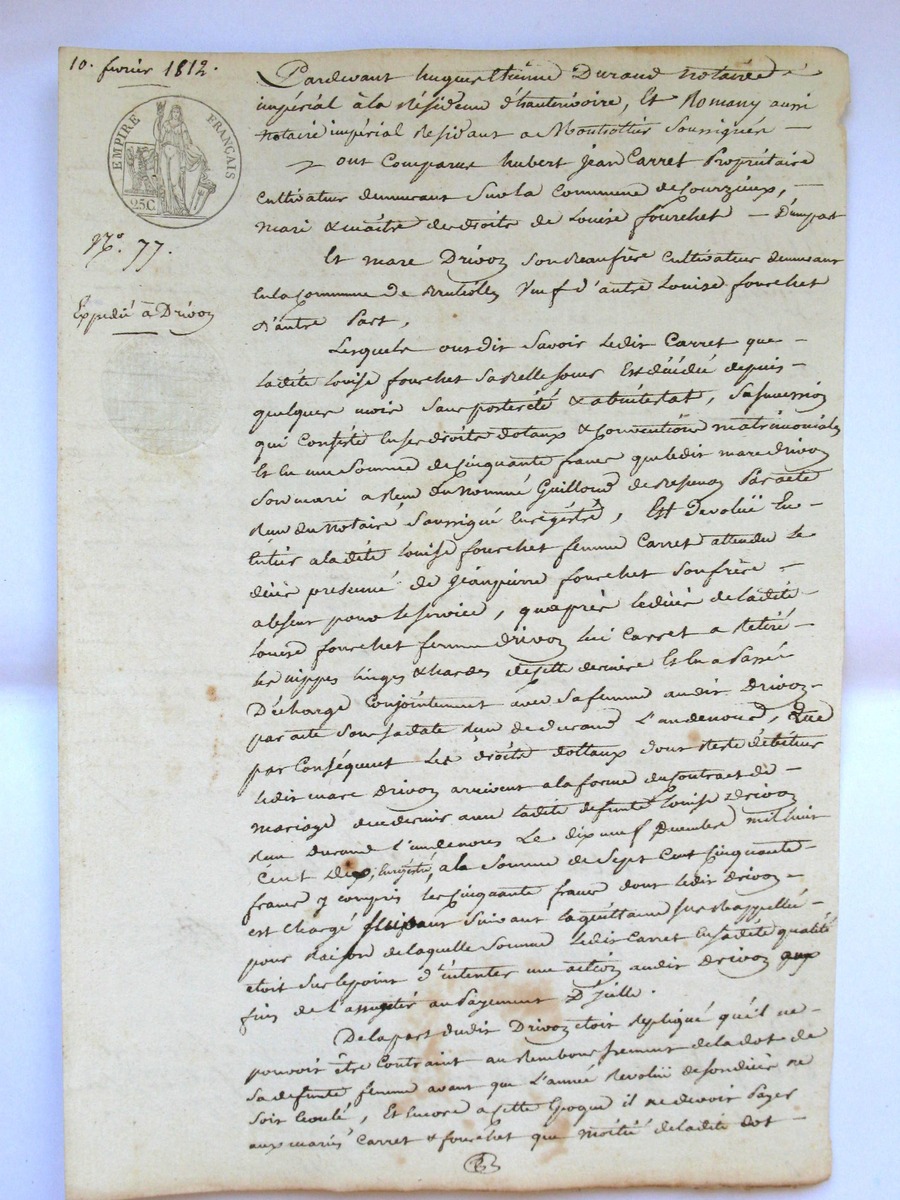 10. fevrier 1812.
EMPIRE FRANÇAIS
25C.
N.o 77.
Expedié à Drivon
Pardevant hugues Etiénne Durand notaire
impérial à la Résidence d'hauterivoire, Et Romany aussi
notaire impérial Residant a Montrottier Soussignés —
ont Comparus hubert jean Carret Propriétaire
Cultivateur demeurant Sur la Commune de Courzieux, —
mari & maître des droits de Louise fourchet — D'une part
Et marc Drivon Son Beaufrère Cultivateur demeurant
En la Commune de Brulliolles Veuf d'autre Louise fourchet
D'autre Part,
Lesquels ont dit Savoir ledit Carret que —
ladite Louise fourchet Sa Belle Soeur Est décédée depuis —
quelques mois Sans posterité & abintestat, Sa succession
qui Consiste En ses droits dotaux & Conventions matrimoniales
Et En une Somme de Cinquante francs que ledit marc Drivon
Son mari a Reçu du Nommé Guilloud de Par acte
Reçu du Notaire Soussigné Enregistré, Est Devolüe En-
-tière a ladite Louise fourchet femme Carret attendu le
décès presumé de jeanpierre fourchet Son frère —
absent pour le Service, qu'après le décès de ladite
Louise fourchet femme Drivon lui Carret a Retiré —
les nippes linges & hardes de Celle derniere Et En a Passé
Décharge Conjointement avec Sa femme audit Drivon —
par acte Sous Sa date Reçu de Durand L'un de nous, Que
par Conséquent Les droits dottaux dont Reste débiteur
ledit marc Drivon arrivent a la forme du Contract de —
mariage de ce dernier avec ladite defunte Louise Drivon
Reçu Durand l'un de nous Le dix neuf Decembre mil huit
Cent Dix, Enregistré, a la Somme de Sept Cent Cinquante —
francs y compris les Cinquante francs dont ledit Drivon —
est Chargé Suivant la quittance Sus Rappellée —
pour Raison de laquelle Somme Ledit Carret En sadite qualité
étoit Sur le point d'intenter une action audit Drivon aux
fins de l'assujetir au Payement D'Icelle.
De la part dudit Drivon étoit Repliqué qu'il ne —
pouvoit être Contraint au Remboursement de la dot de
Sa defunte femme avant que L'année Revolüe de son décès ne
Soit Ecoulé, Et Encore a Cette Epoque il ne devoit Payer
aux mariés Carret & fourchet que moitié de ladite dot —